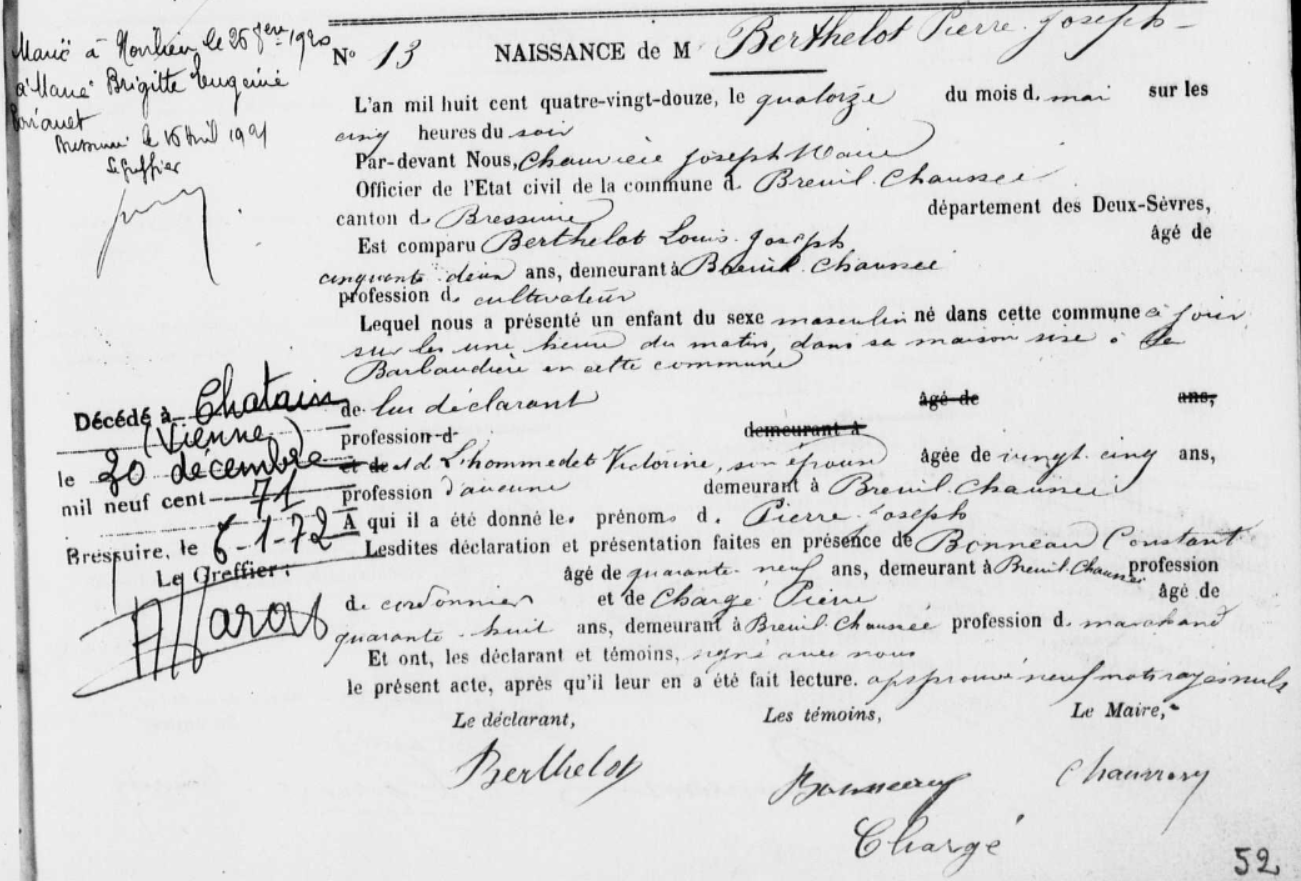 Marié à le 26 1920
à Marie Brigitte Eugénie
le 15 avril 1921
Le Greffier
N° 13 NAISSANCE de M Berthelot Pierre Joseph
L'an mil huit cent quatre-vingt-douze, le quatorze du mois d. mai sur les
cinq heures du soir
Par-devant Nous, Joseph Maire
Officier de l'Etat civil de la commune d. Breuil-Chaussée
canton d. Bressuire département des Deux-Sèvres,
Est comparu Berthelot Louis Joseph âgé de
cinquante deux ans, demeurant à Breuil-Chaussée
profession d. cultivateur
Lequel nous a présenté un enfant du sexe masculin né dans cette commune ce jour
sur les une heure du matin, dans sa maison sise à la
Barbaudière en cette commune
de lui déclarant âgé de ans,
profession d demeurant à
et de et d Lhommedet Victorine, son épouse âgée de vingt cinq ans,
profession d'aucune demeurant à Breuil-Chaussée
A qui il a été donné les prénoms d. Pierre Joseph
Lesdites déclaration et présentation faites en présence de Bonneau Constant
âgé de quarante-neuf ans, demeurant à Breuil-Chaussée profession
de cordonnier et de Chargé Pierre âgé de
quarante-huit ans, demeurant à Breuil-Chaussée profession d. marchand
Et ont, les déclarant et témoins, signé avec nous
le présent acte, après qu'il leur en a été fait lecture. approuvé neuf mots rayés nuls
Le déclarant, Les témoins, Le Maire,
Berthelot Bonneau
Chargé
Décédé à Chatain
(Vienne)
le 20 décembre
mil neuf cent 71
Bressuire, le 6-1-72
Le Greffier :
52